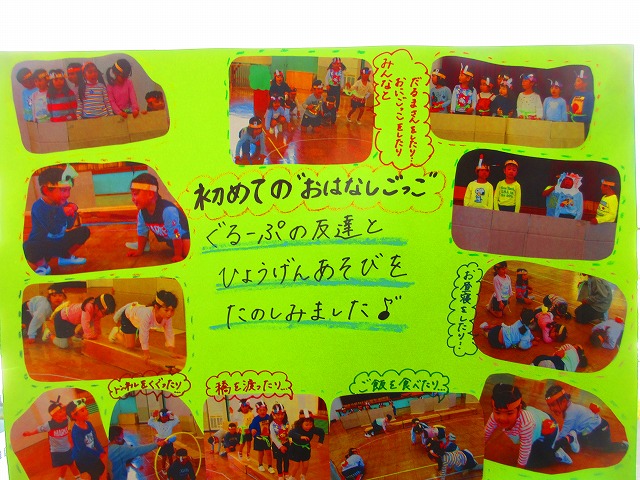 みんなと
おにごっこをしたり
だるまさんをしたり…
初めての"おはなしごっこ"
ぐるーぷの友達と
ひょうげんあそびを
たのしみました♪
お昼寝をしたり…
トンネルをくぐったり…
橋を渡ったり…
ご飯を食べたり…